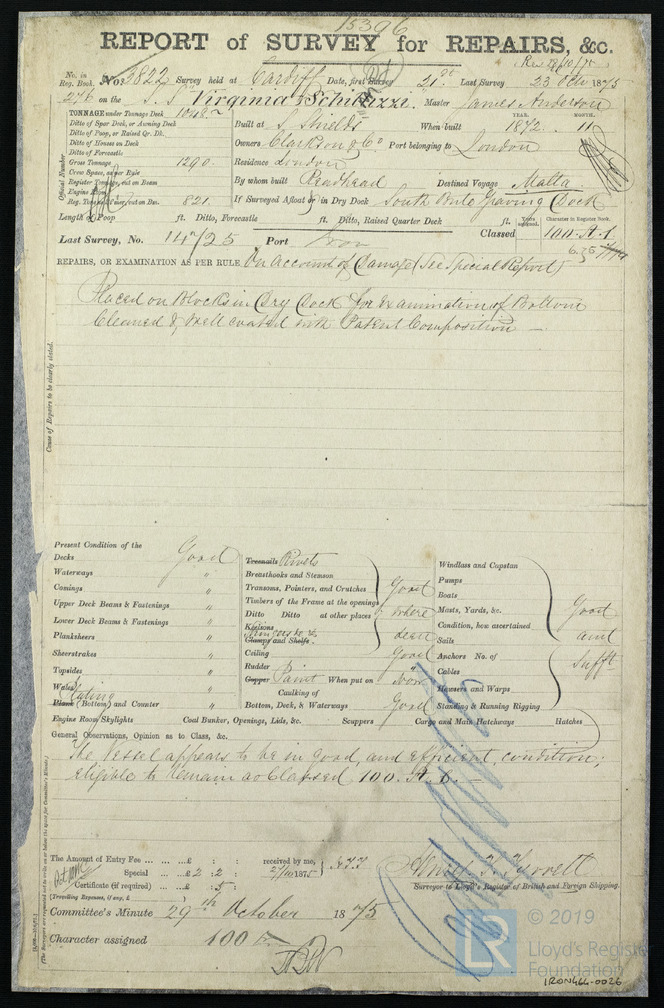 15396
REPORT of SURVEY for REPAIRS, &c.
Rec 28/10/75
No. in Reg. Book. No. 3822 Survey held at Cardiff Date, first Survey 21st Last Survey 23 Oct 1875
276 on the S.S. Virginia Schiluzzi. Master James Anderson
TONNAGE under Tonnage Deck 1048
Ditto of Spar Deck, or Awning Deck
Ditto of Poop, or Raised Qr. Dk.
Ditto of Houses on Deck
Ditto of Forecastle
Gross Tonnage 1290
Crew Space, as per Rule
Register Tonnage, cut on Beam
Engine Room
Reg. Tonnage, if steamer, cut on Bm. 821
Official Number
YEAR. MONTH.
Built at S. Shields When built 1872 .. 11
Owners Clarkson & Co Port belonging to London
Residence London
By whom built Readhead Destined Voyage Malta
If Surveyed Afloat or in Dry Dock South Bute Graving Dock
Length of Poop ft. Ditto, Forecastle ft. Ditto, Raised Quarter Deck ft.
Years assigned. Character in Register Book.
Last Survey, No. 14725 Port Iron Classed 100.A.1.
REPAIRS, OR EXAMINATION AS PER RULE, On Account of Damage (See Special Report)
Placed on Blocks in Dry Dock for Examination of Bottom
Cleaned & well coated with Patent Composition —
Cause of Repairs to be clearly stated.
Present Condition of the
Decks Good
Waterways "
Comings "
Upper Deck Beams & Fastenings "
Lower Deck Beams & Fastenings "
Planksheers "
Sheerstrakes "
Topsides "
Wales "
Plating
Plank (Bottom) and Counter "
Treenails Rivets
Breasthooks and Stemson
Transoms, Pointers, and Crutches Good
Timbers of the Frame at the openings
Ditto Ditto at other places where
Keelsons
Clamps and Shelfs seen
Ceiling Good
Rudder
Copper Paint When put on Now
Caulking of
Bottom, Deck, & Waterways Good
Windlass and Capstan
Pumps
Boats
Masts, Yards, &c. Good
Condition, how ascertained and
Sails
Anchors No. of Sufft
Cables
Hawsers and Warps
Standing & Running Rigging
Engine Room Skylights Coal Bunker, Openings, Lids, &c. Scuppers Cargo and Main Hatchways Hatches
General Observations, Opinion as to Class, &c.
The Vessel appears to be in good, and efficient condition;
eligible to remain as Classed 100.A.1. —
The Amount of Entry Fee ... ... £ : : received by me,
Special ... £ 2 : 2 : 27/10/1875
Certificate (if required) ... : 5 :
(Travelling Expenses, if any, £
Surveyor to Lloyd's Register of British and Foreign Shipping.
Committee's Minute 29th October 1875
Character assigned 100
© 2019
LR
Lloyd's Register
Foundation
IRON466-0026